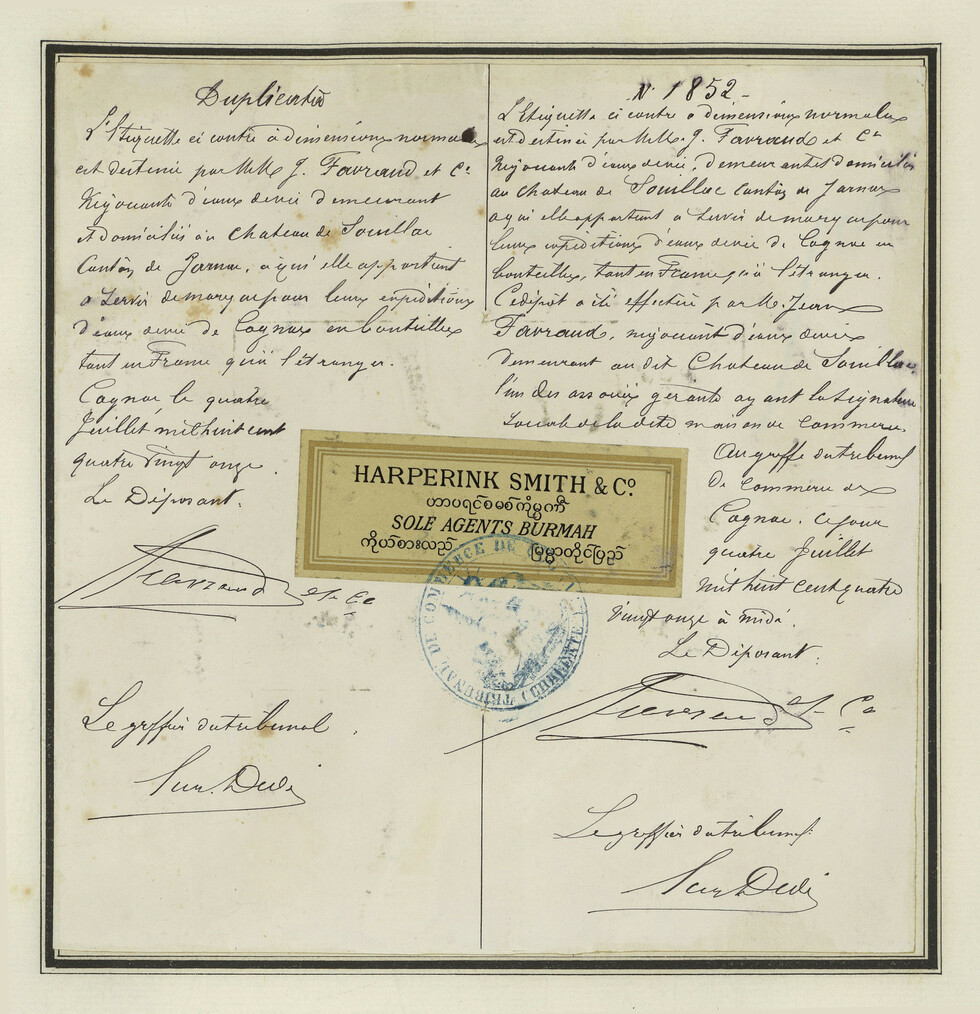 Duplicata
L'Etiquette ci contre à dimensions normales
est destinée par MM J. Favraud et Cie
Négociants d'eaux de vie demeurant
et domiciliés au Chateau de Souillac
Canton de Jarnac, à qui elle appartient
à servir de marque pour leurs expéditions
d'eaux de vie de Cognac en bouteilles
tant en France qu'à l'étranger.
Cognac le quatre
Juillet mil huit cent
quatre vingt onze.
Le Déposant.
Favraud et Cie
Le greffier du tribunal
N. 1852-
L'Etiquette ci contre à dimensions normales
est destinée par MM. J. Favraud et Cie
Négociants d'eaux de vie, demeurant et domiciliés
au chateau de Souillac canton de Jarnac
à qui elle appartient à servir de marque pour
leurs expéditions d'eaux de vie de Cognac en
bouteilles, tant en France qu'à l'étranger.
Ce dépôt a été effectué par M. Jean
Favraud, négociant d'eaux de vie
demeurant au dit Chateau de Souillac,
l'un des associés gérants ayant la signature
sociale de la dite maison de commerce.
Au greffe du tribunal
de commerce de
Cognac. ce jour
quatre Juillet
mil huit cent quatre
vingt onze à midi.
Le Déposant.
Favraud et Cie
Le greffier du tribunal
HARPERINK SMITH & Co
ဟာပရင်စမစ်ကိုမ္ပဏီ
SOLE AGENTS BURMAH
ကိုယ်စားလည် မြမ္မာတိုင်ပြည်
TRIBUNAL DE COMMERCE DE COGNAC (CHARENTE)